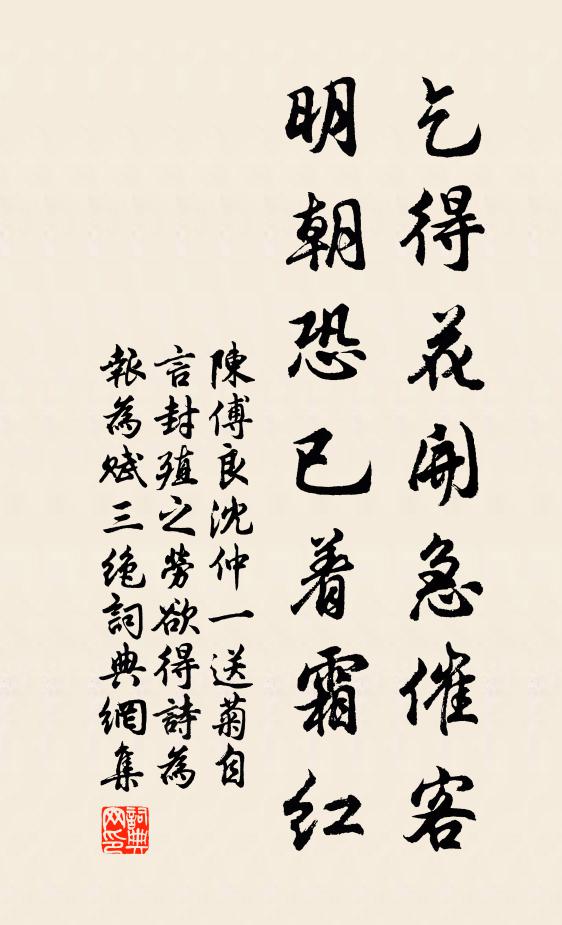 乞得花開急催客
明朝恐已着霜紅
陳傅良沈仲一送菊自
言封殖之勞欲得詩為
報為賦三絶詞典網集
詞典网印